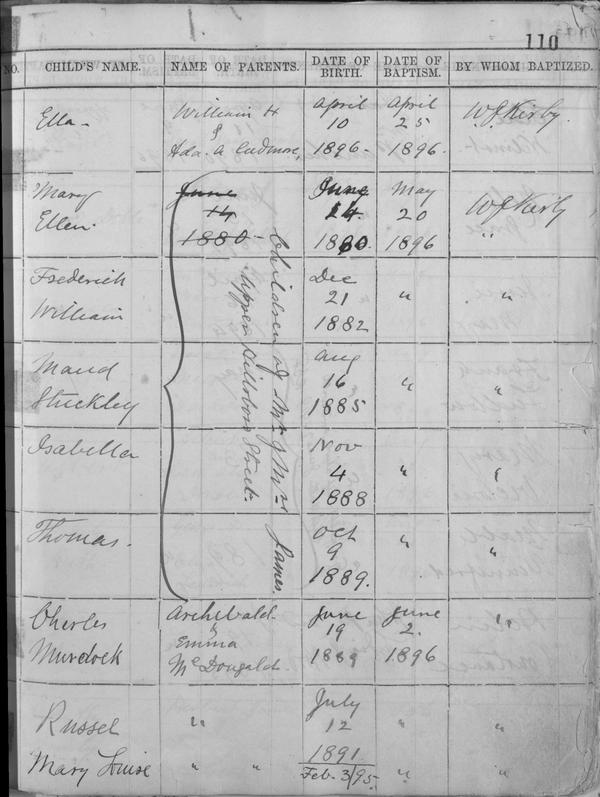 1.
110
NO. CHILD'S NAME. NAME OF PARENTS. DATE OF BIRTH. DATE OF BAPTISM. BY WHOM BAPTIZED.
Ella - William H April April WJKirby.
& 10 25 "
Ada. A Cudmore, 1896- 1896.
Mary June June May WJKirby
Ellen. 14 14. 20 "
1880- 1880. 1896
Children of Mr & Mrs James.
Upper Hillsboro Street.
Frederick Dec
21 " "
William 1882
Maud Aug
16 " "
Stuckley 1885
Isabella Nov
4 " "
1888
Thomas. Oct
9 " "
1889.
Charles Archibald June June "
& 19 2.
Murdock Emma 1889 1896
McDougald
July
Russel " 12 " "
1891
Mary Louise " " Feb. 3/95. " "